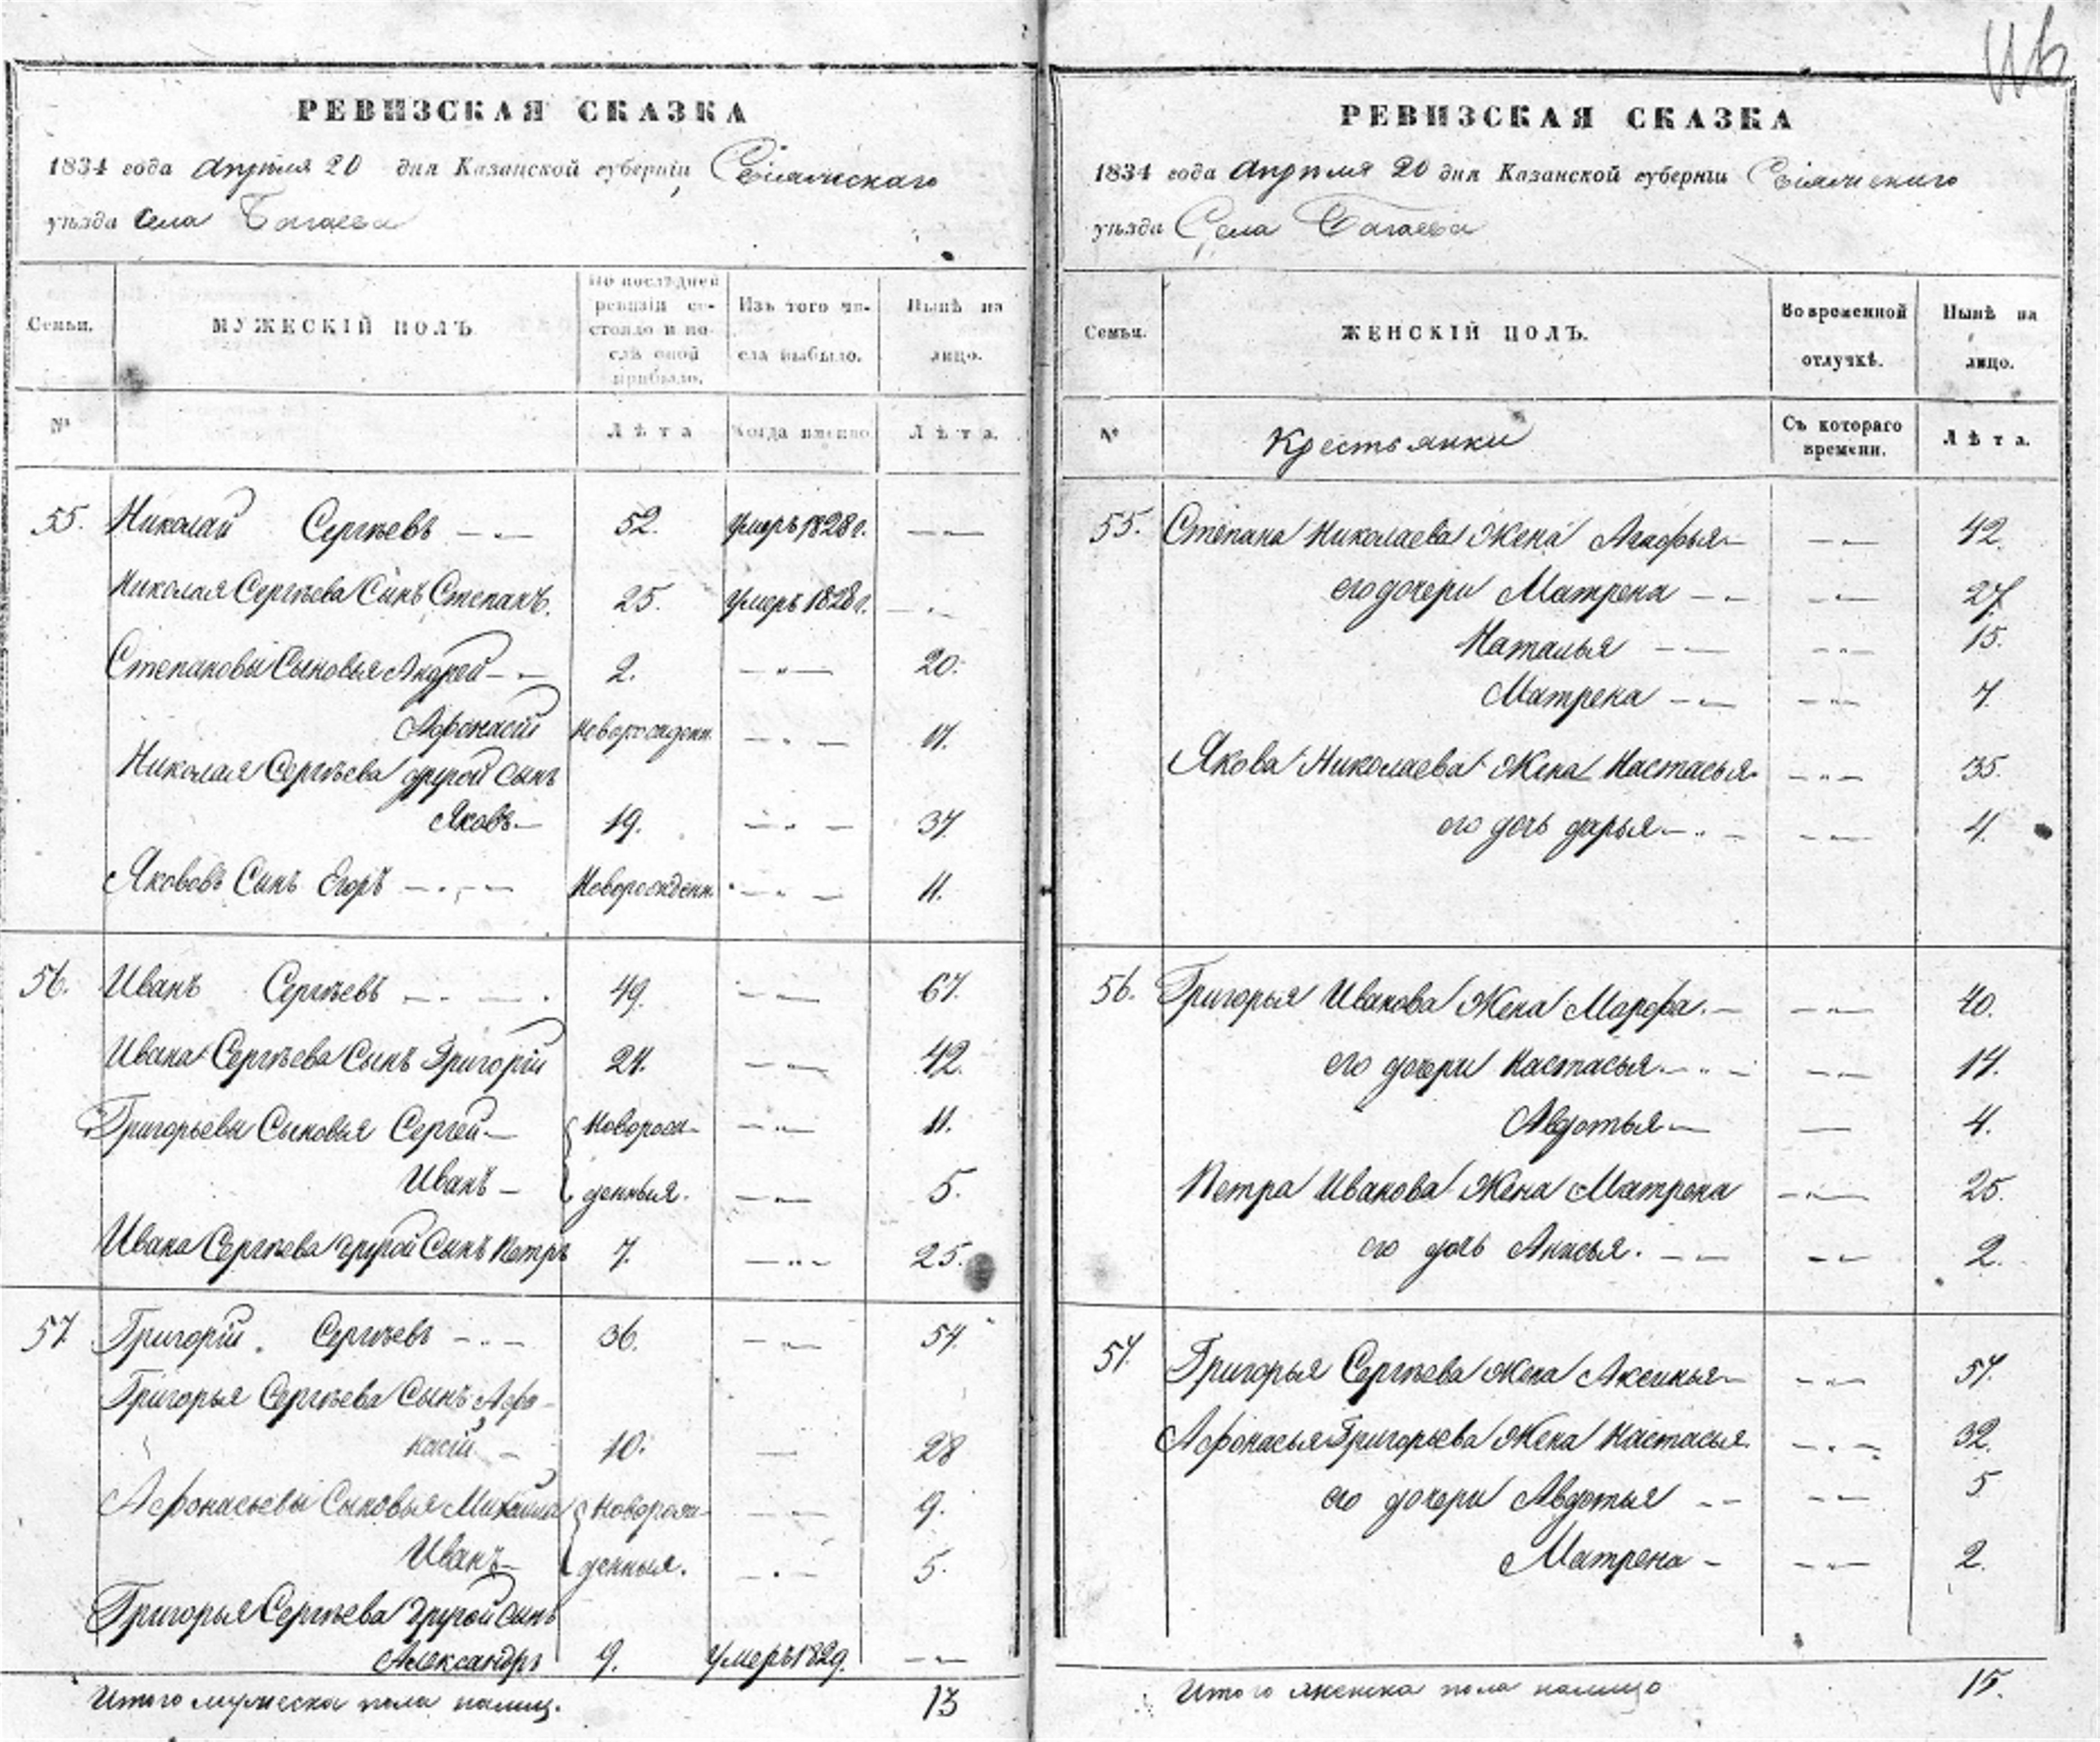 РЕВИЗСКАЯ СКАЗКА
1834 года Апреля 20 дня Казанской губерніи Свіяжскаго
уѣзда Села Багаева
Семьи.
МУЖЕСКІЙ ПОЛЪ
По послѣдней
ревизіи со-
стояло и по-
слѣ оной
прибыло.
Изъ того чи-
сла выбыло.
Нынѣ на
лицо.
№
Лѣта
Когда именно
Лѣта.
55. Николай Сергѣевъ 52. Умеръ 1828 г.
Николая Сергѣева Сынъ Степанъ. 25. Умеръ 1828 г.
Степановы Сыновья Андрей 2. 20.
Афонасій Новорожденн. 17.
Николая Сергѣева другой сынъ
Яковъ 19. 37.
Яковов Сынъ Егоръ Новорожденн. 11.
56. Иванъ Сергѣевъ 49. 67.
Ивана Сергѣева Сынъ Григорій 24. 42.
Григорьевы Сыновья Сергей Новорож- 11.
Иванъ денныя. 5.
Ивана Сергѣева другой Сынъ Петръ 7. 25.
57 Григорій Сергѣевъ 36. 54.
Григорья Сергѣева Сынъ Афо-
насій 10. 28
Афонасьевы Сыновья Михайла Новорож- 9.
Иванъ денныя. 5.
Григорья Сергѣева другой сынъ
Александръ 9. Умеръ 1829.
Итого мужеска пола налиц. 13
РЕВИЗСКАЯ СКАЗКА
1834 года Апреля 20 дня Казанской губерніи Свіяжскаго
уѣзда Села Багаева
Семьи.
ЖЕНСКІЙ ПОЛЪ.
Во временной
отлучкѣ.
Нынѣ на
лицо.
№
Крестьянки
Съ котораго
времени.
Лѣта.
55. Степана Николаева Жена Агафья 42.
его дочери Матрена 27.
Наталья 15.
Матрена 7.
Якова Николаева Жена Настасья 35.
его дочь дарья 4.
56. Григорья Иванова Жена Марфа. 40.
его дочери Настасья 14.
Авдотья 4.
Петра Иванова Жена Матрена 25.
его дочь Анисья. 2.
57. Григорья Сергѣева жена Аксинья 57.
Афонасья Григорьева Жена Настасья 32.
его дочери Авдотья 5
Матрена 2.
Итого женска пола налицо 15.